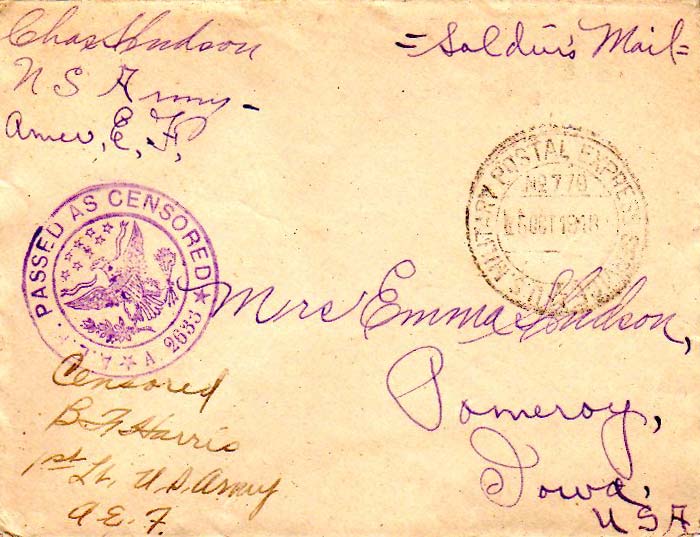 Chas Hudson
U S Army
Amer, E, F,
=Soldier's Mail=
MILITARY POSTAL EXPRESS SERVICE
No 770
OCT 1918
PASSED AS CENSORED
A.E.F. ★ A. 2633 ★
Mrs Emma Hudson,
Pomeroy,
Iowa,
USA
Censored
B F Harris
1st Lt. U.S. Army
A E. F.